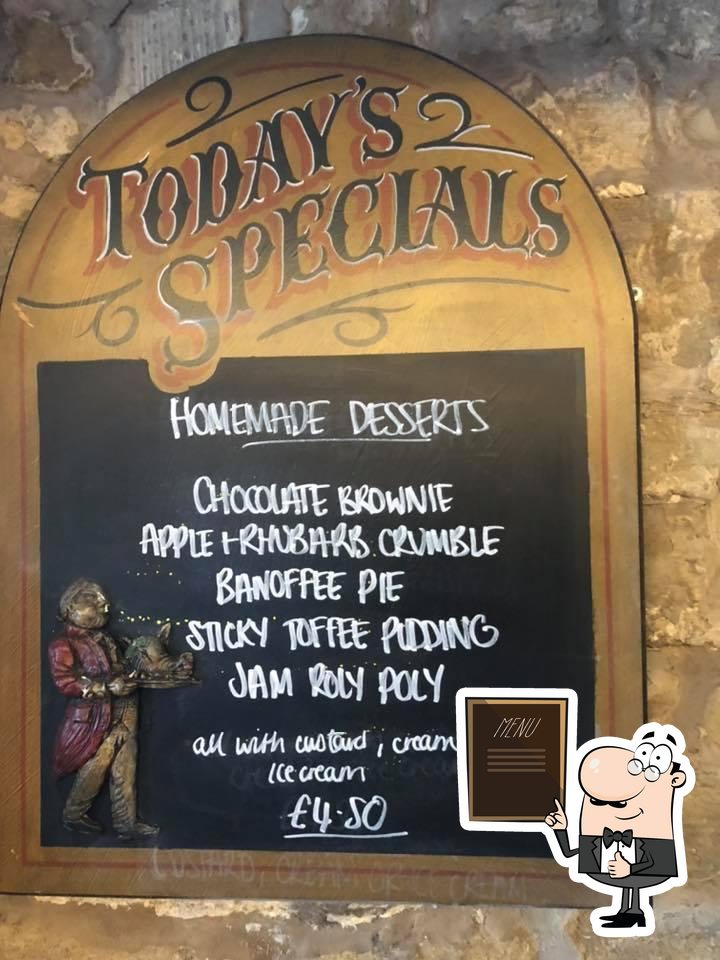 TODAY'S
SPECIALS
HOMEMADE DESSERTS
CHOCOLATE BROWNIE
APPLE + RHUBARB CRUMBLE
BANOFFEE PIE
STICKY TOFFEE PUDDING
JAM ROLY POLY
all with custard, cream
Ice cream
£4.50
CUSTARD, CREAM OR ICE CREAM
MENU